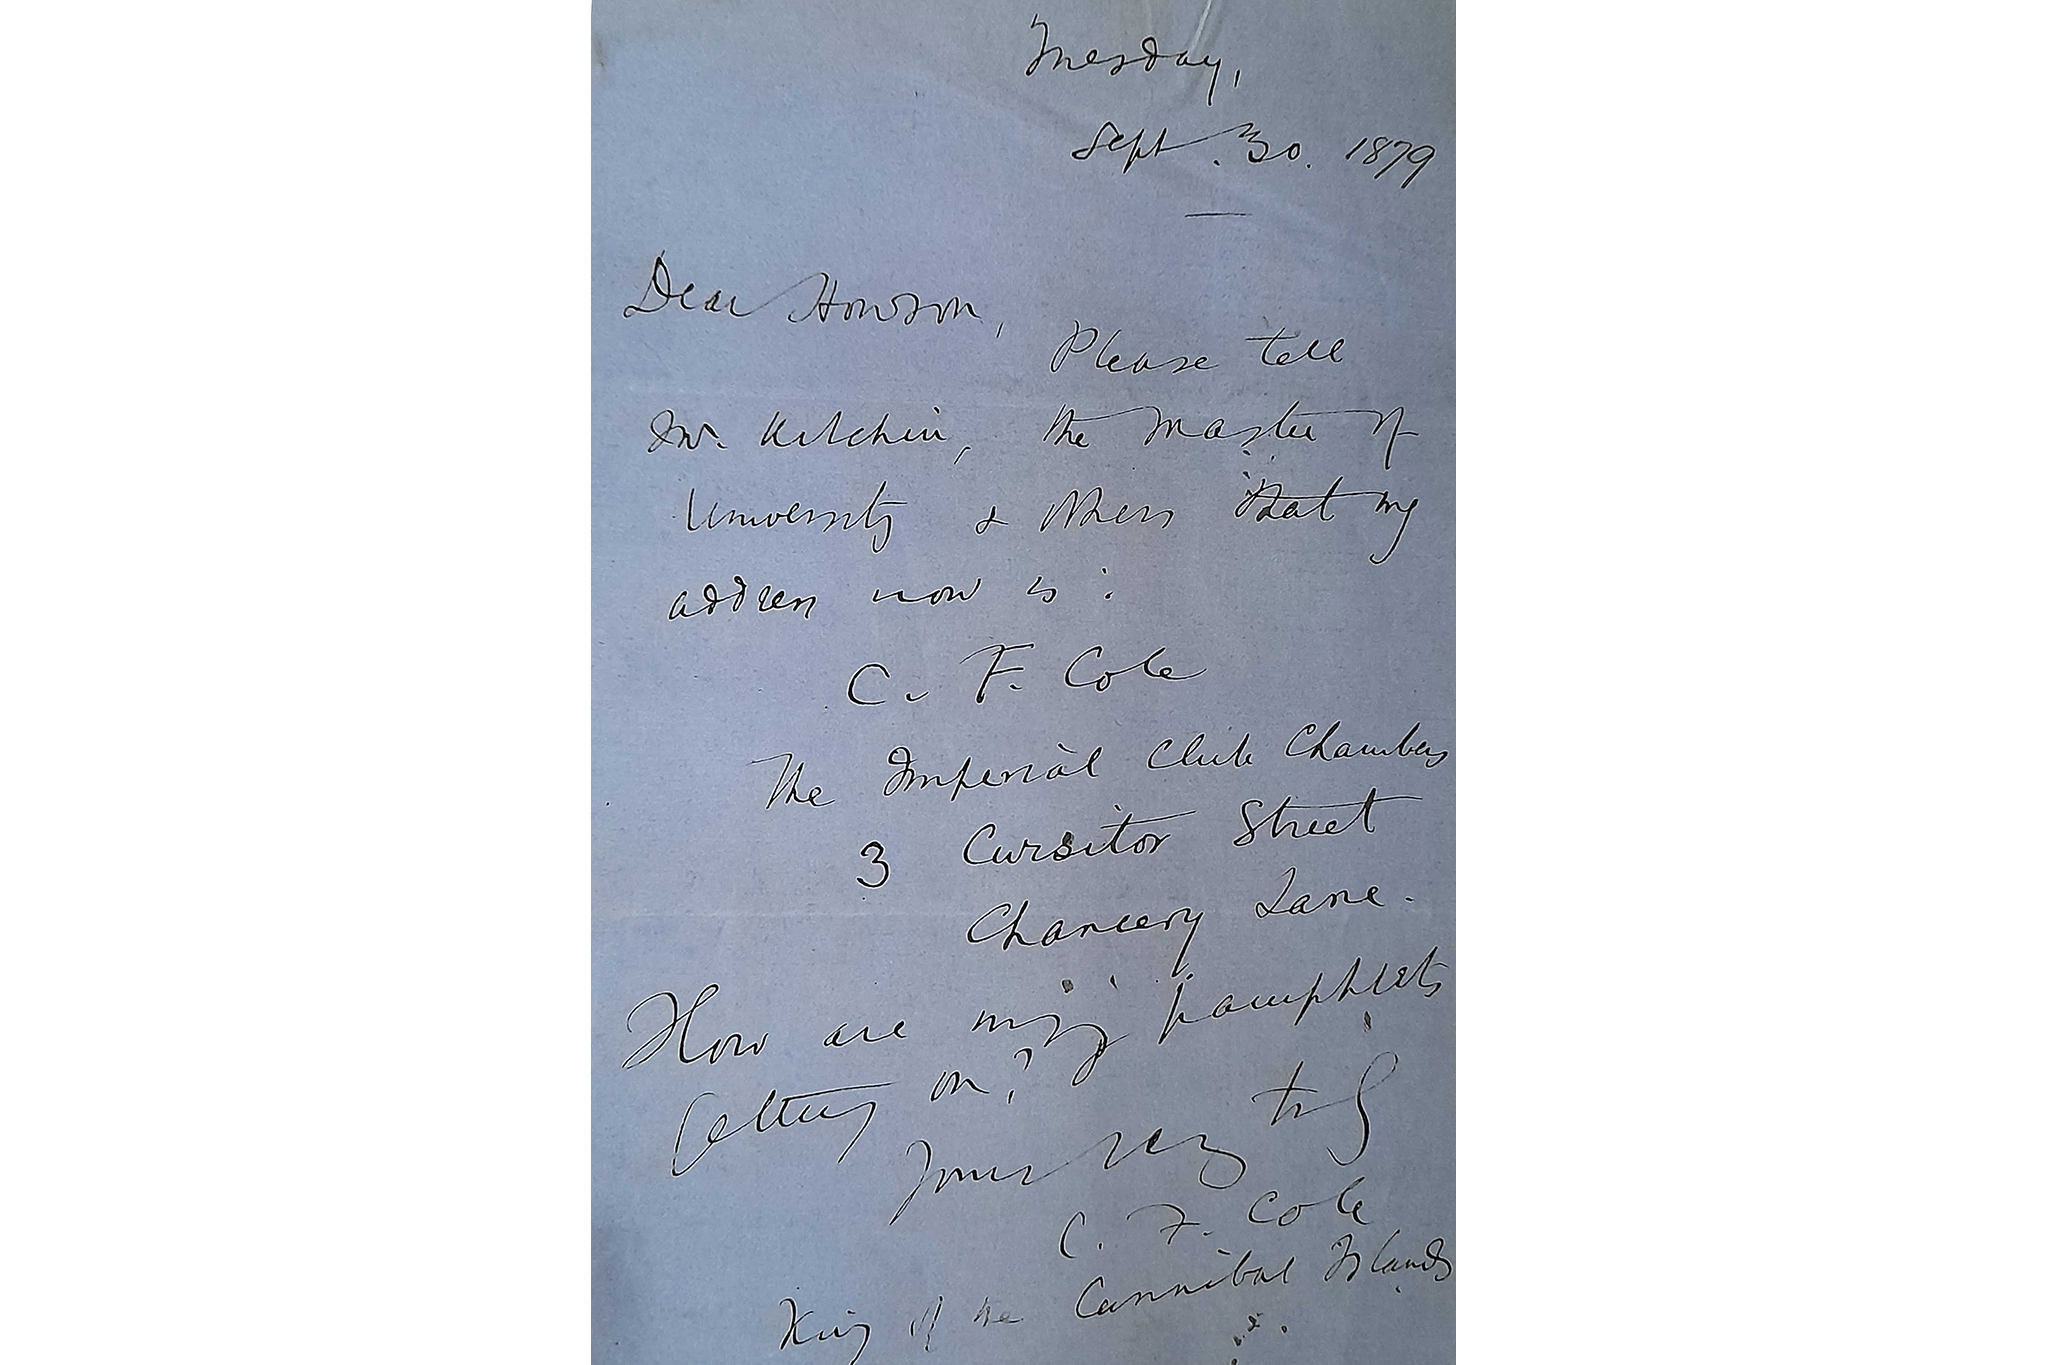 Tuesday,
Sept. 30. 1879
Dear Howson,
Please tell
Mr. Kitchin, the Master of
University & others that my
address now is:
C. F. Cole
The Imperial Club Chambers
3 Cursitor Street
Chancery Lane.
How are my pamphlets
getting on?
Yours very try
C. F. Cole
King of the Cannibal Islands